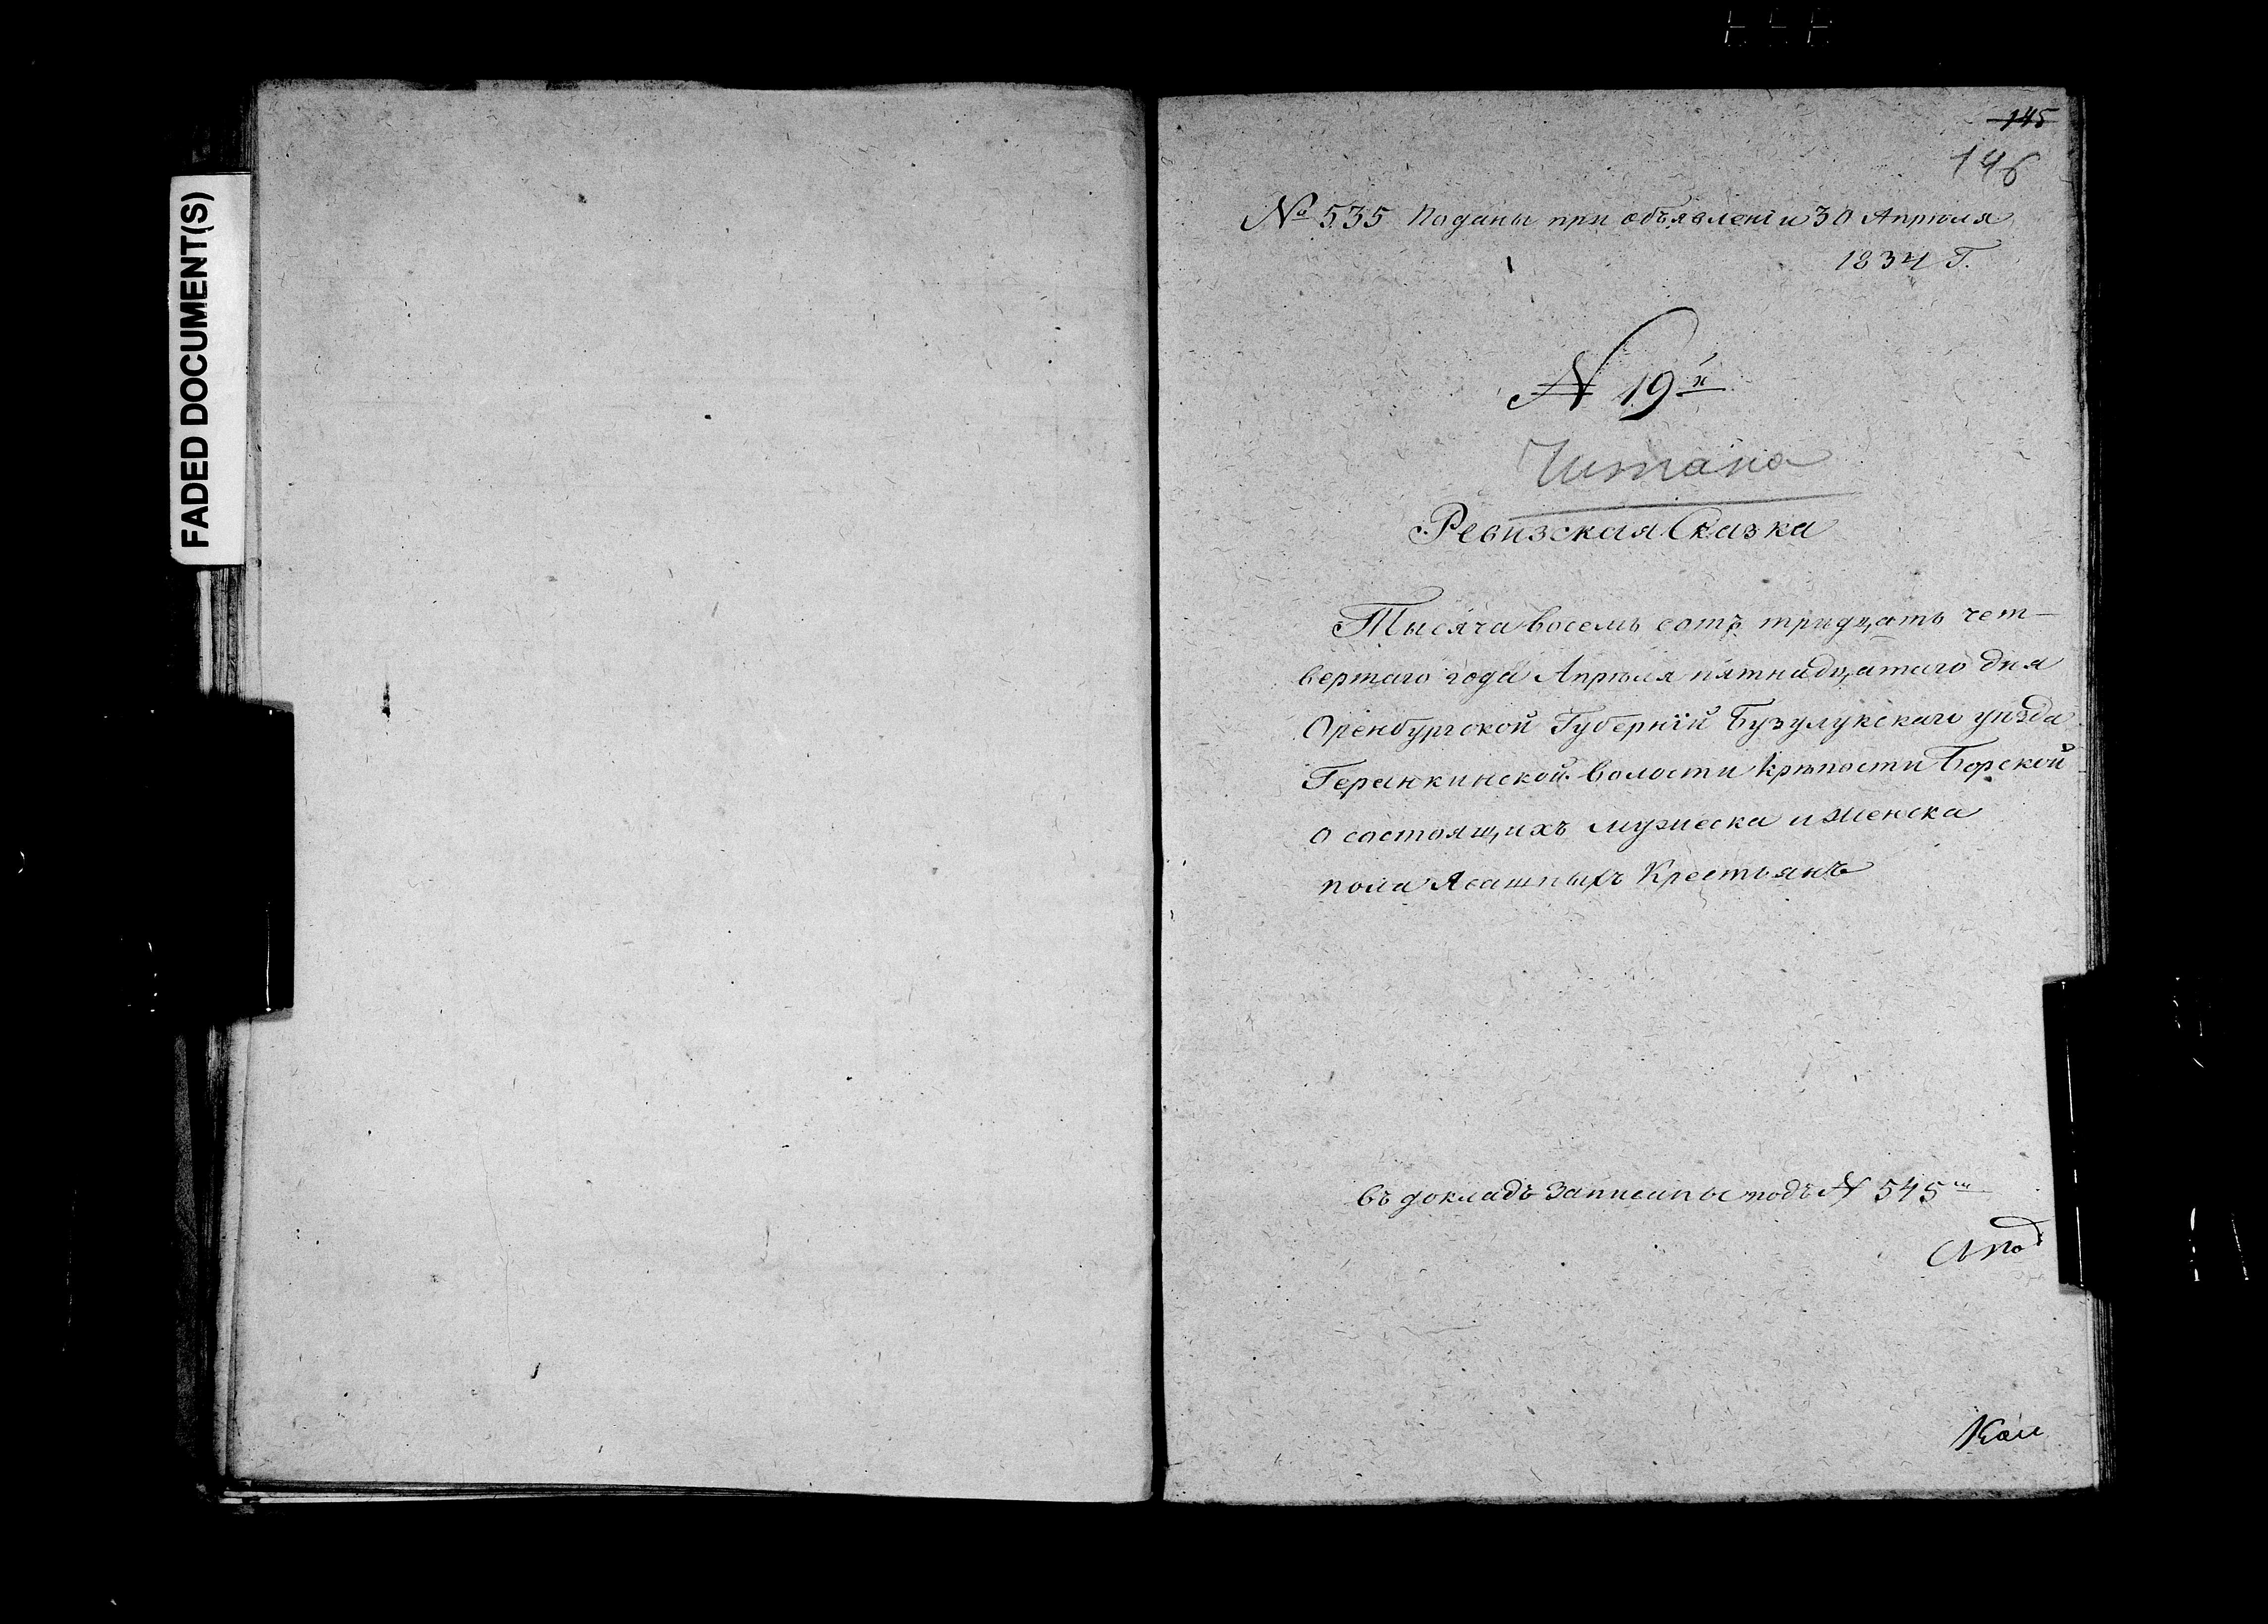 FADED DOCUMENT(S)
145
146
№ 535 Поданы при объявленіи 30 Апрѣля
1834 Г.
№ 19й
Читана
Ревизская Сказка
Тысяча восемь сотъ тридцать чет-
вертаго года Апрѣля пятнадцатаго дня
Оренбургской Губерніи Бузулукскаго уѣзда
Геранкинской волости крѣпости Борской
о состоящихъ мужеска и женска
пола Ясашныхъ Крестьянъ
въ докладъ записаны подъ № 545